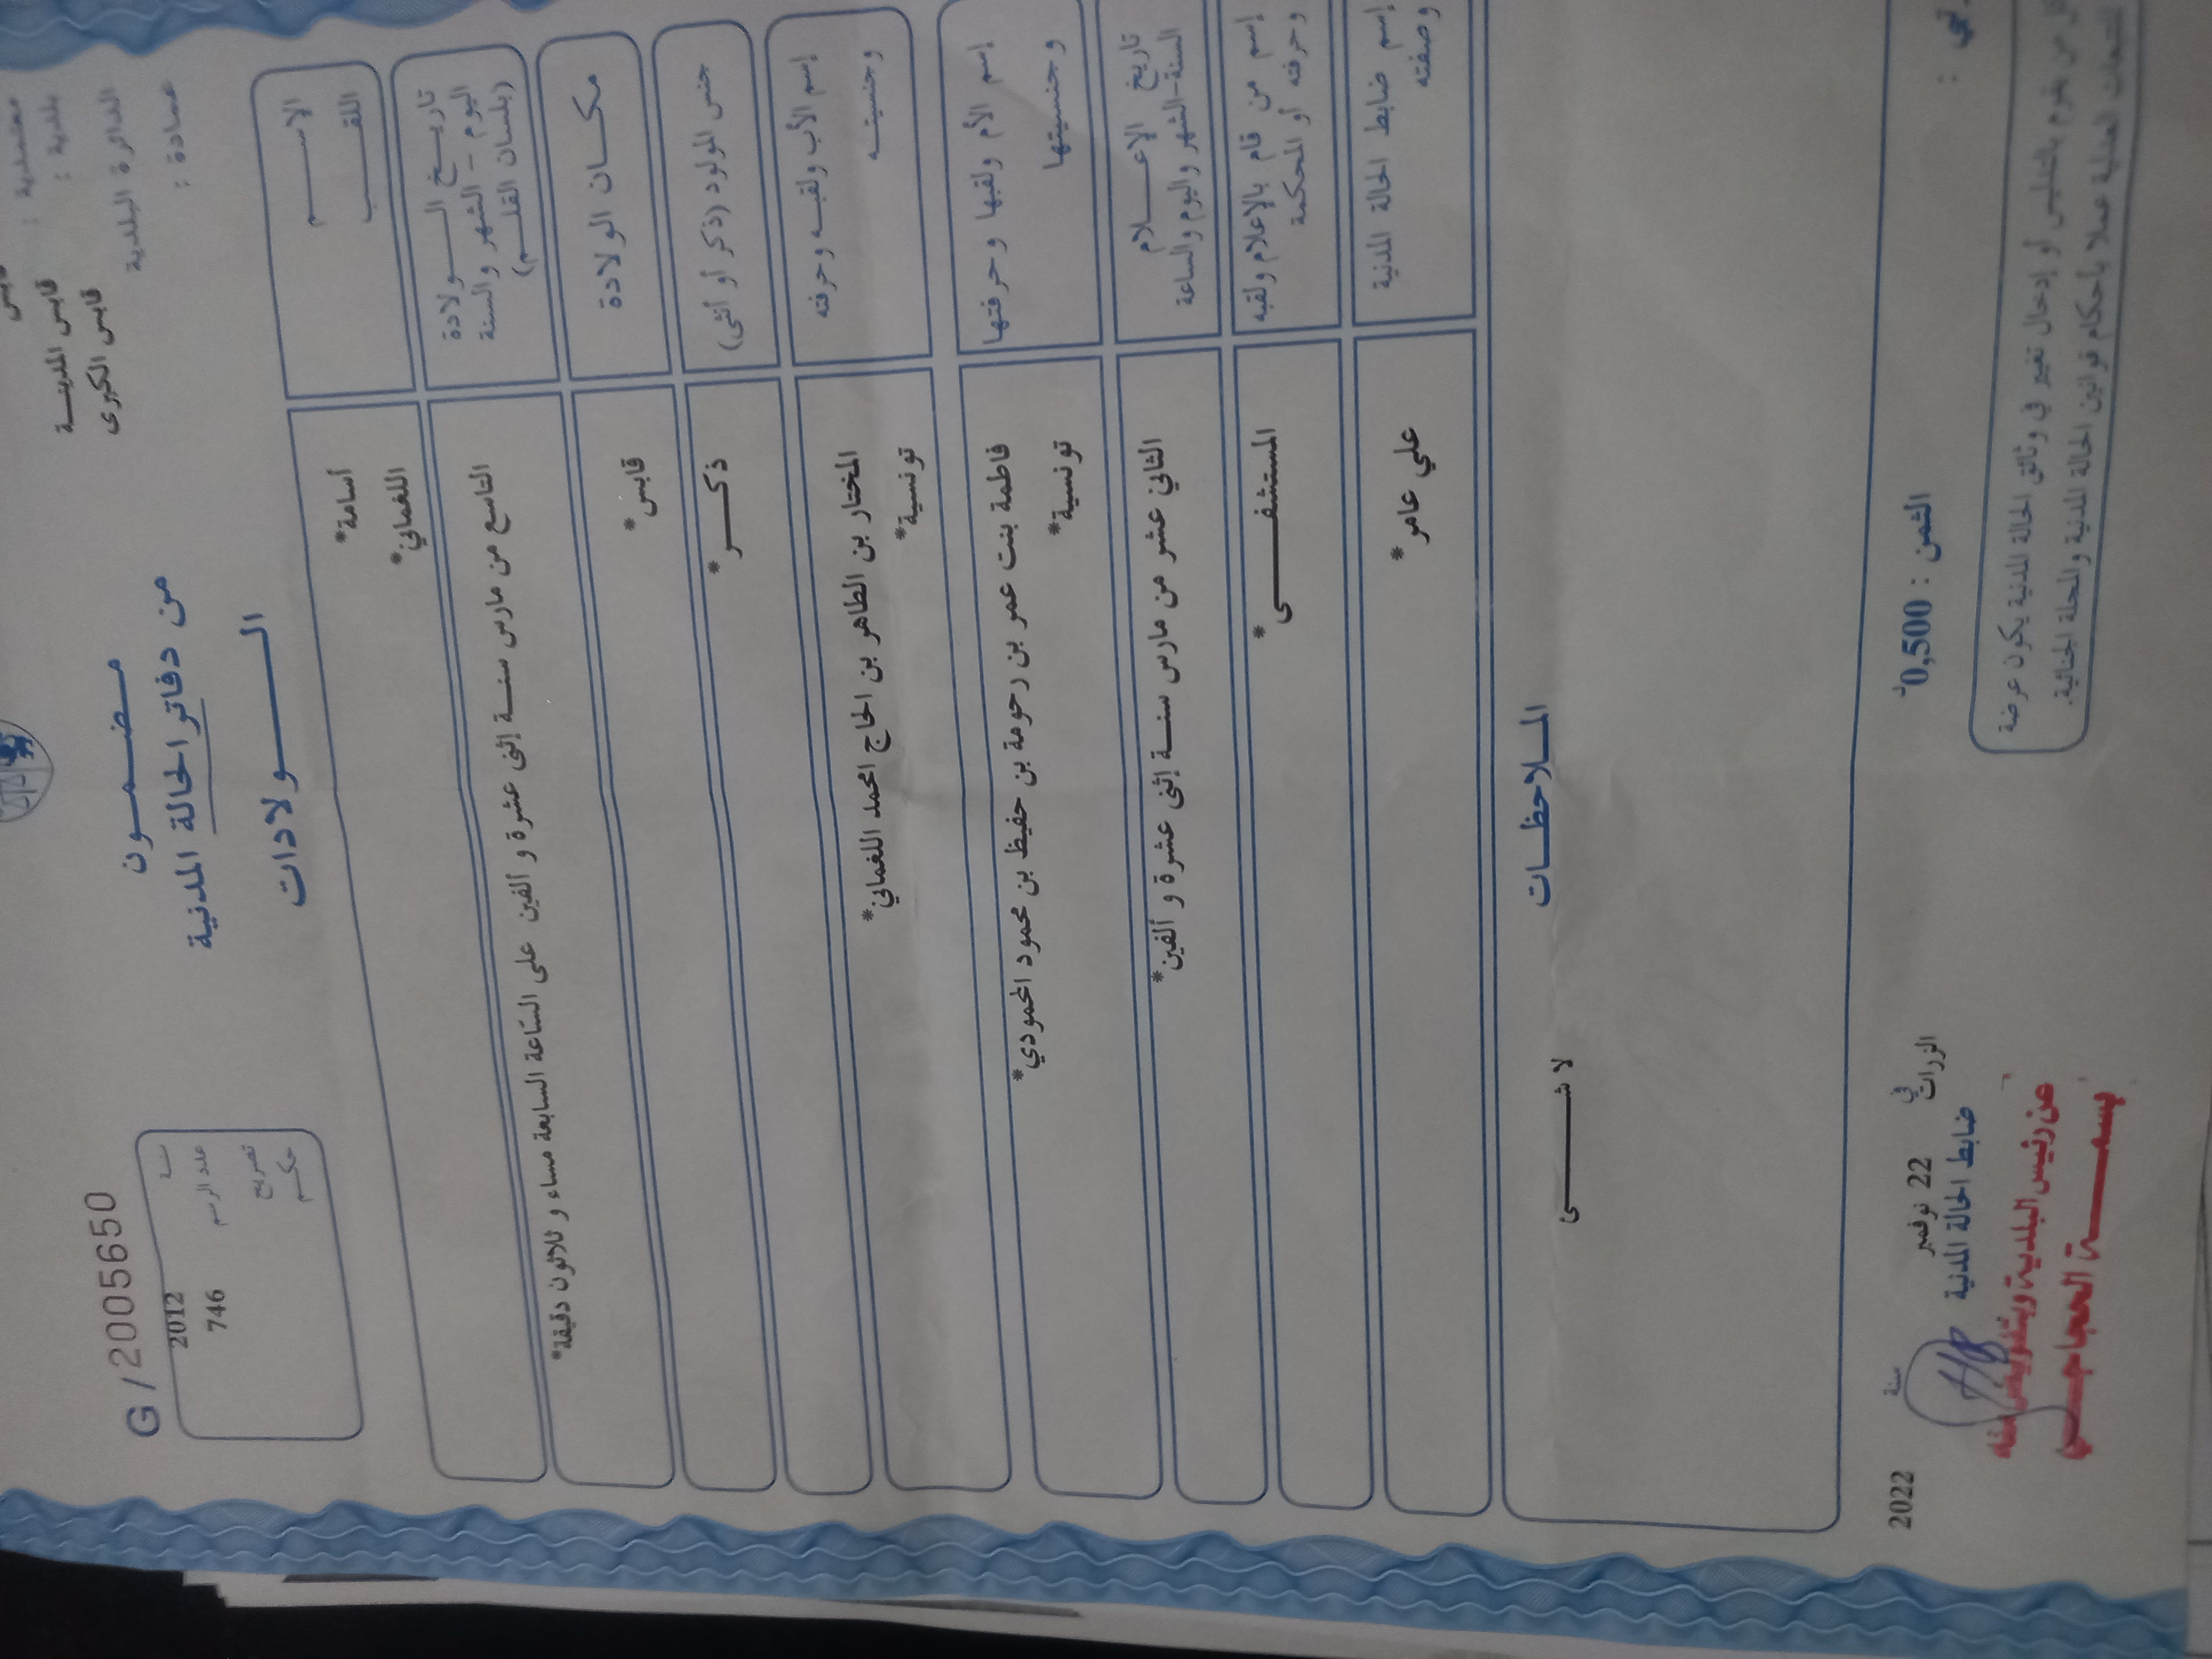 قابس
معتمدية : قابس المدينـــة
بلدية : قابس الكبرى
الدائرة البلدية
عمادة :
G/2005650
سنة 2012
عدد الرسم 746
تصريح
حكم
مـضــمــون
من دفاتر الحالة المدنية
الــــــولادات
الاســـــم أسامة*
اللقـــــب اللغماني*
تاريـــخ الـــــولادة
اليوم - الشهر والسنة
(بلسان القلــم)
التاسع من مارس سنـــة إثنى عشرة و ألفين على الساعة السابعة مساء و ثلاثون دقيقة*
مكـــان الولادة قابس*
جنس المولود (ذكر أو أنثى) ذكـــر*
إسم الأب ولقبــه وحرفته المختار بن الطاهر بن الحاج امحمد اللغماني*
وجنسيتــه تونسية*
إسم الأم ولقبها وحرفتها فاطمة بنت عمر بن رحومة بن حفيظ بن محمود المحمودي*
وجنسيتها تونسية*
تاريخ الإعـــلام
السنة-الشهر واليوم والساعة
الثاني عشر من مارس سنـــة إثنى عشرة و ألفين*
إسم من قام بالإعلام ولقبه
وحرفته أو المحكمة
المستشفـــــى*
إسم ضابط الحالة المدنية
وصفته
علي عامر*
المــلاحظــات
لا شـــــئ
الثمن : 0,500د
الزرات في 22 نوفمبر سنة 2022
ضابط الحالة المدنية
عن رئيس البلدية وبتفويض منه
بسمـــــة الحجامـــي
كل من يقوم بالتدليس أو إدخال تغيير في وثائق الحالة المدنية يكون عرضة
للتتبعات العدلية عملا بأحكام قوانين الحالة المدنية والمجلة الجنائية.